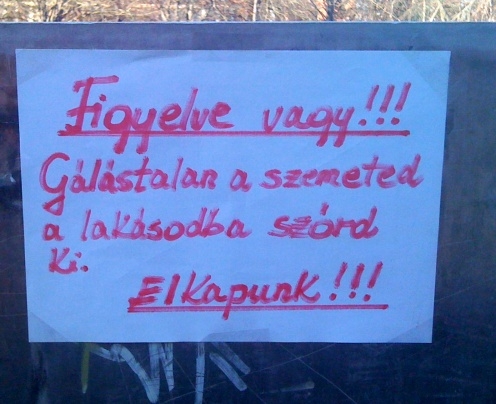 Figyelve vagy!!!
Gálástalan a szemeted
a lakásodba szórd
ki.
Elkapunk!!!